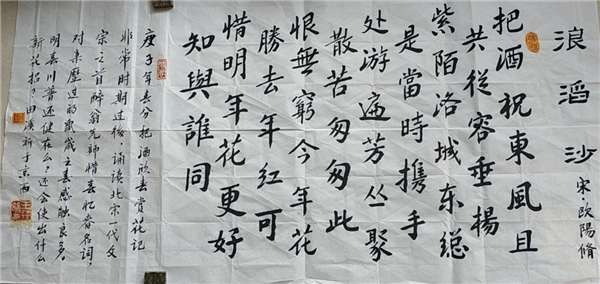 浪滔沙 宋·欧陽脩
把酒祝東風且
共從容垂楊
紫陌洛城东總
是當時携手
处游遍芳丛聚
散苦匆匆此
恨無窮今年花
勝去年红可
惜明年花更好
知與誰同
庚子年春分把酒欣春賞花记
非常时期过後,诵读北宋一代文
宗之首醉翁先师惜春忆春名词,
对亲歷过的感触良多。
明春川普还健在么?还会使出什么
新花招?田溪祈于京西